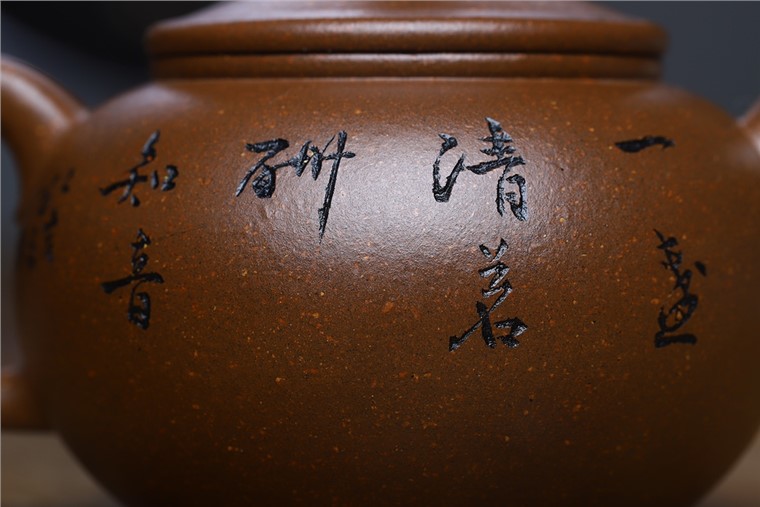 一盏
清茗
酬
知音